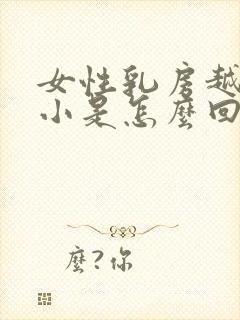 女性乳房越
小是怎麼回
麼?你